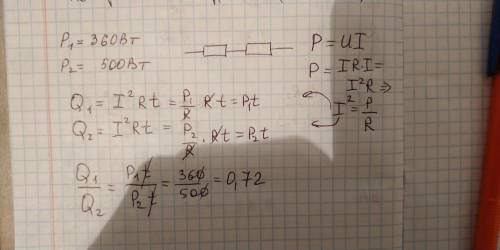 P₁ = 360Вт
P₂ = 500Вт
P = UI
P = IR·I =
I²R ⇒
I² = P/R
Q₁ = I²Rt = P₁/R · Rt = P₁t
Q₂ = I²Rt = P₂/R · Rt = P₂t
Q₁/Q₂ = P₁t/P₂t = 360/500 = 0,72